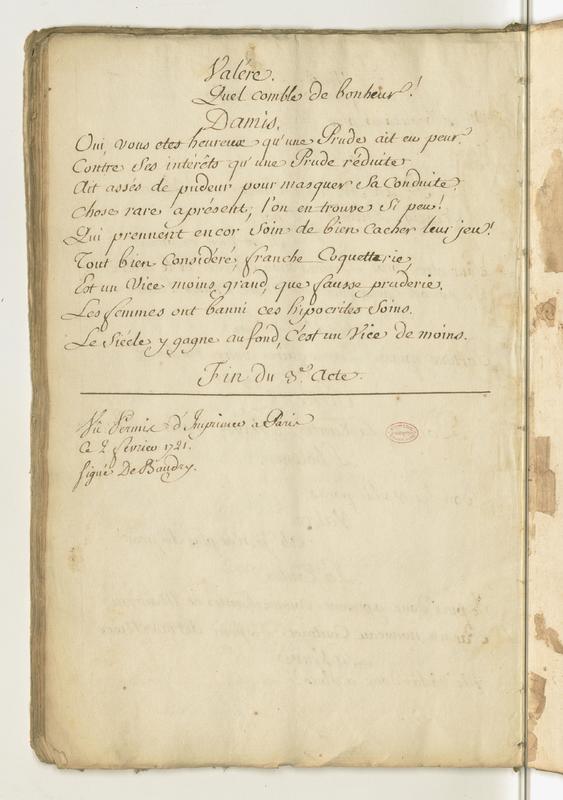 Valére.
Quel comble de bonheur!
Damis.
Oui, vous etes heureux qu'une Prude ait eu peur.
Contre Ses interêts qu'une Prude réduite
Ait assés de pudeur pour masquer Sa Conduite.
Chose rare aprésent, l'on en trouve Si peu!
Qui prennent encor Soin de bien Cacher leur jeu!
Tout bien Considéré, franche Coquetterie,
Est un Vice moins grand, que fausse pruderie.
Les femmes ont banni ces hipocrites Soins.
Le Siécle y gagne au fond, C'est un Vice de moins.
Fin du 3.e Acte.
Vû Permis d'Imprimer a Paris
Ce 2 fevrier 1721.
signé De Baudry.